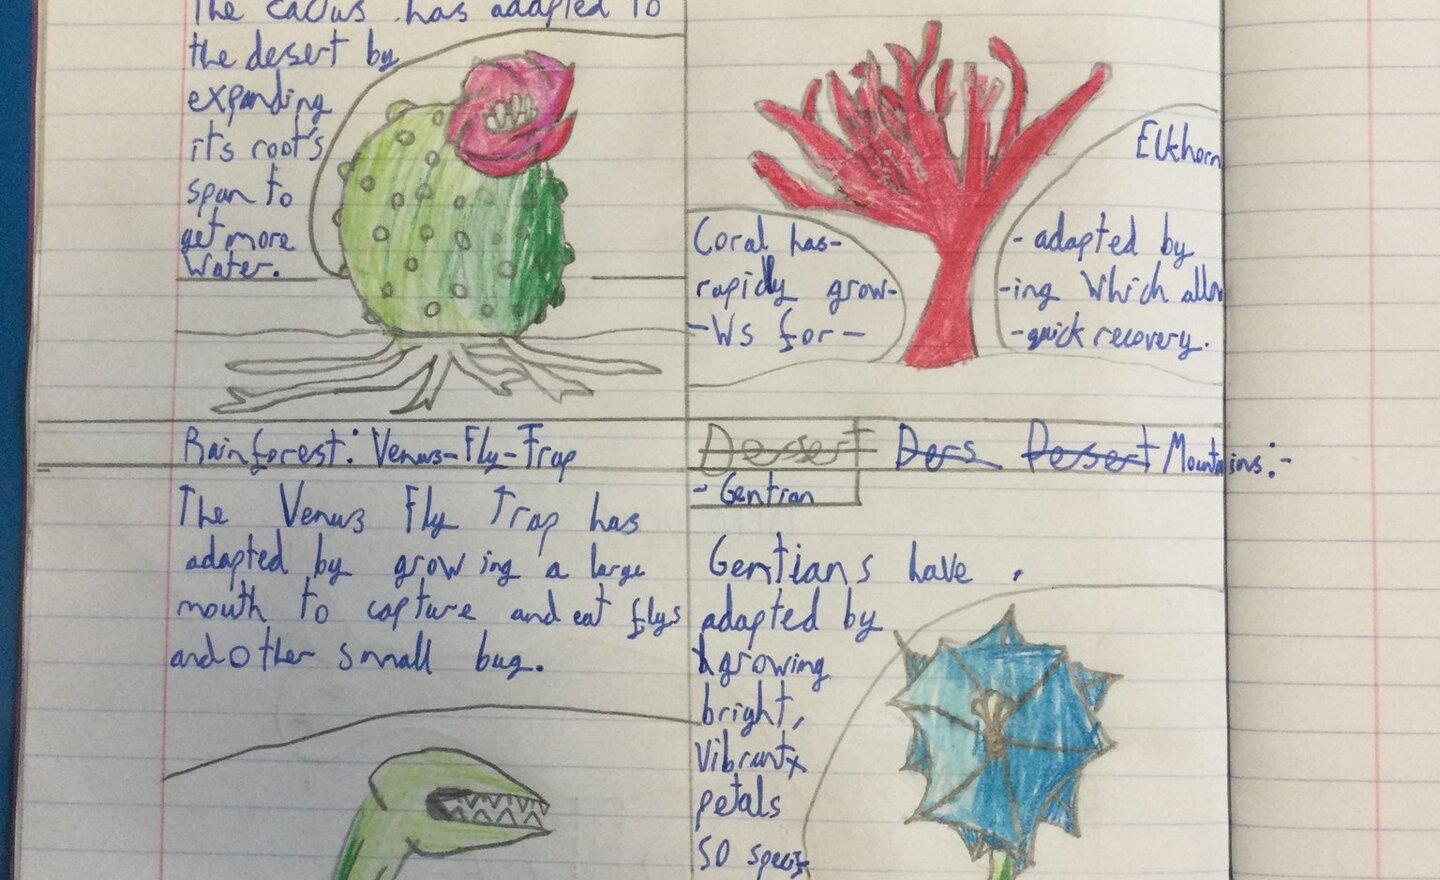 The cactus has adapted to
the desert by
expanding
its root's
span to
get more
Water.
Elkhorn
Coral has-
- adapted by
rapidly grow-
-ing Which allow
-Ws for-
-quick recovery.
Rainforest: Venus-Fly-Trap
The Venus Fly Trap has
adapted by growing a large
mouth to capture and eat flys
and other small bug.
Dessert Ders Desert Mountains:-
- Gentian
Gentians have
adapted by
growing
bright,
Vibrant
petals
so specis